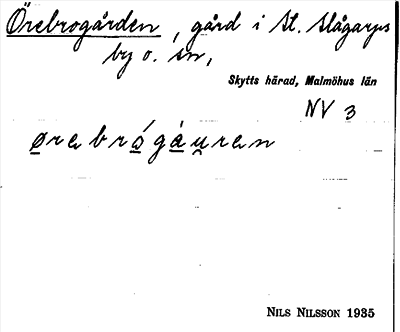 Örebrogården, gård i St. Slågarps
by o. sn,
Skytts härad, Malmöhus län
NV 3
ørabrógåu̯ran
NILS NILSSON 1935